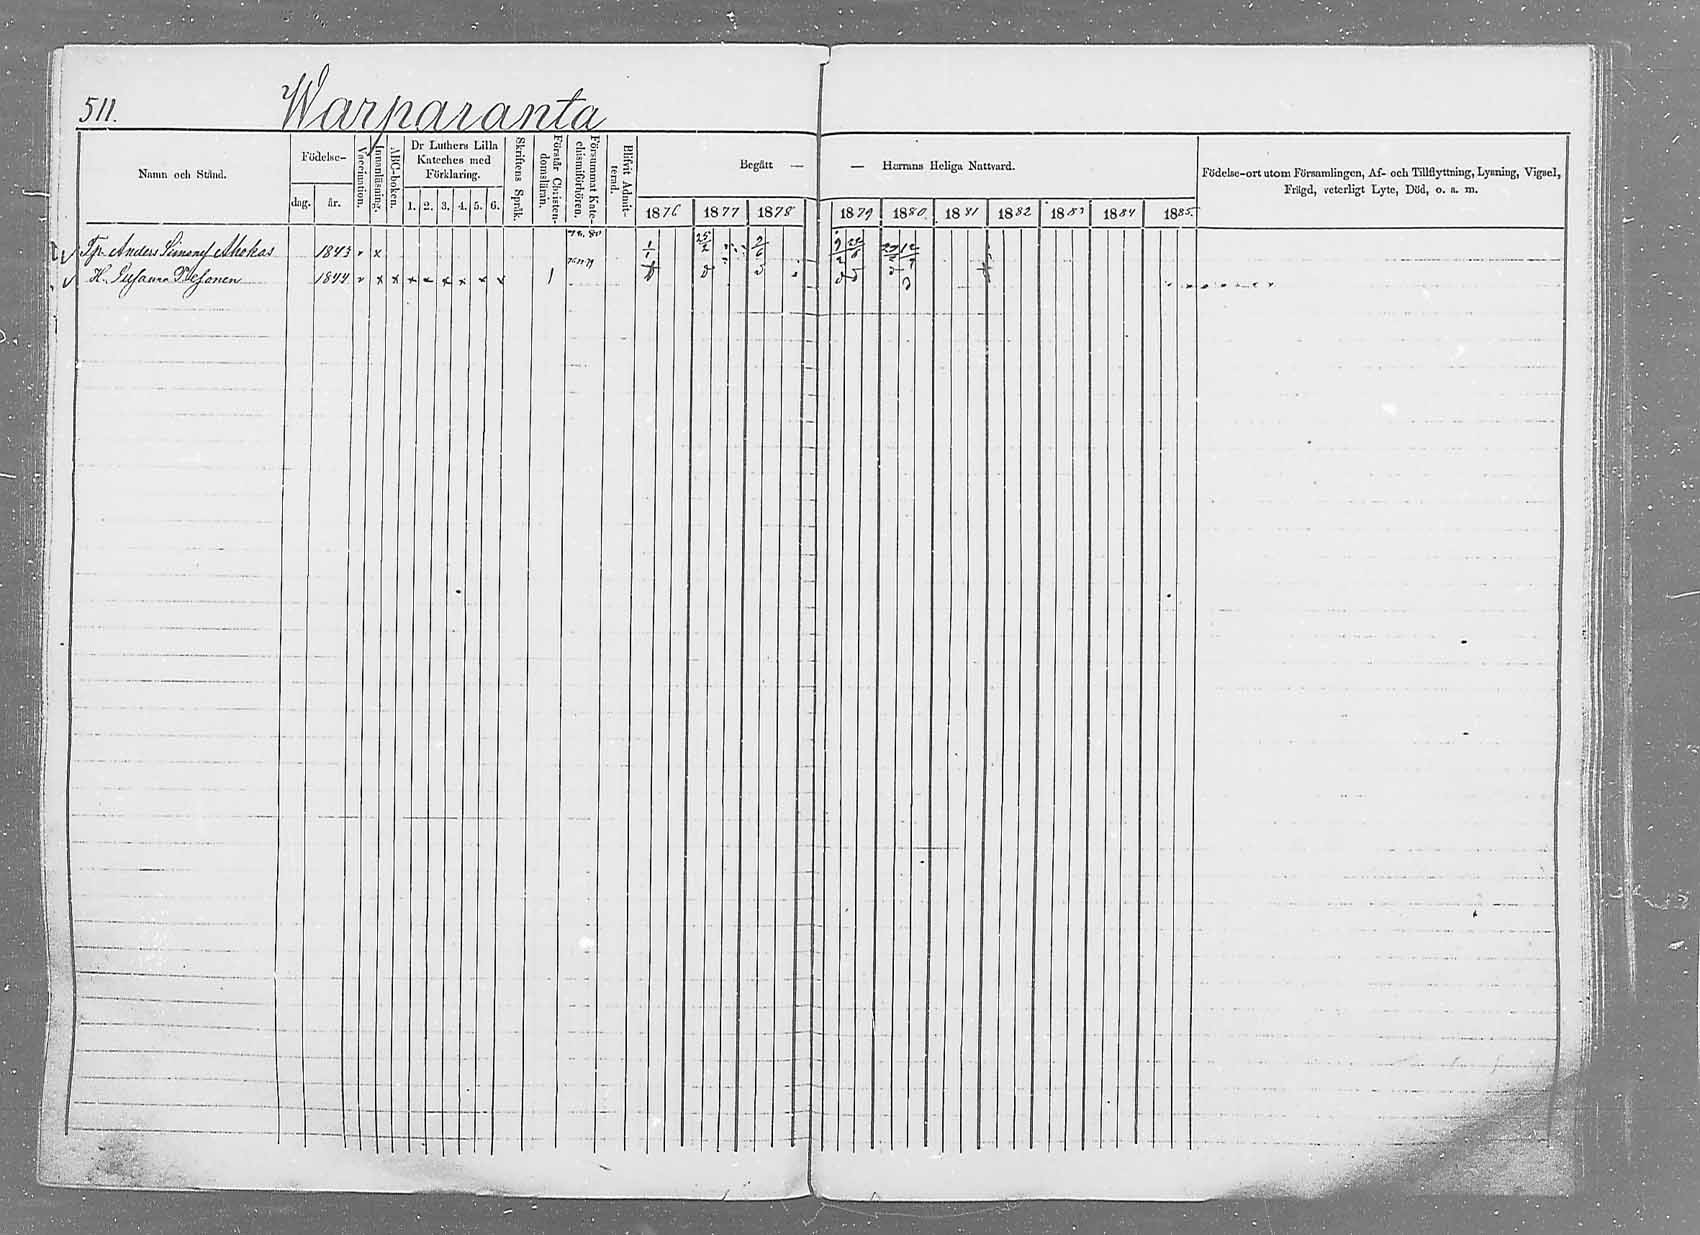 511. Warparanta
Namn och Stånd.
Födelse-
dag. år.
Vaccination.
Innanläsning.
ABC-boken.
Dr Luthers Lilla
Kateches med
Förklaring.
1. 2. 3. 4. 5. 6.
Skriftens Språk.
Förstår Christen-
domsläran.
Försummat Kate-
chismiförhören.
Blifvit Admit-
terad.
Begått — — Herrans Heliga Nattvard.
1876 1877 1878 1879 1880 1881 1882 1883 1884 1885.
Födelse-ort utom Församlingen, Af- och Tillflyttning, Lysning, Vigsel,
Frägd, veterligt Lyte, Död, o. a. m.
Anders Simonsf Ahokas 1843 v x 78. 80 1/1 25/2
H. Susanna 1844 v x x x x x x x x 1